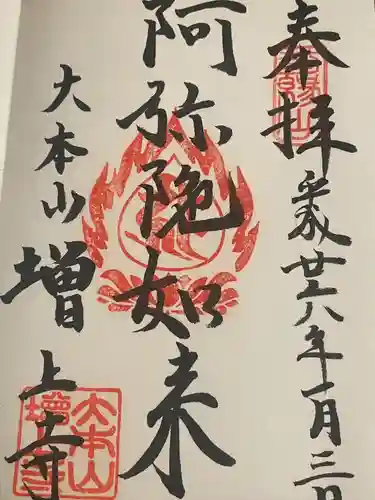 奉拝
平成廿六年一月三日
阿弥陀如来
大本山
増上寺
大本山
増上寺